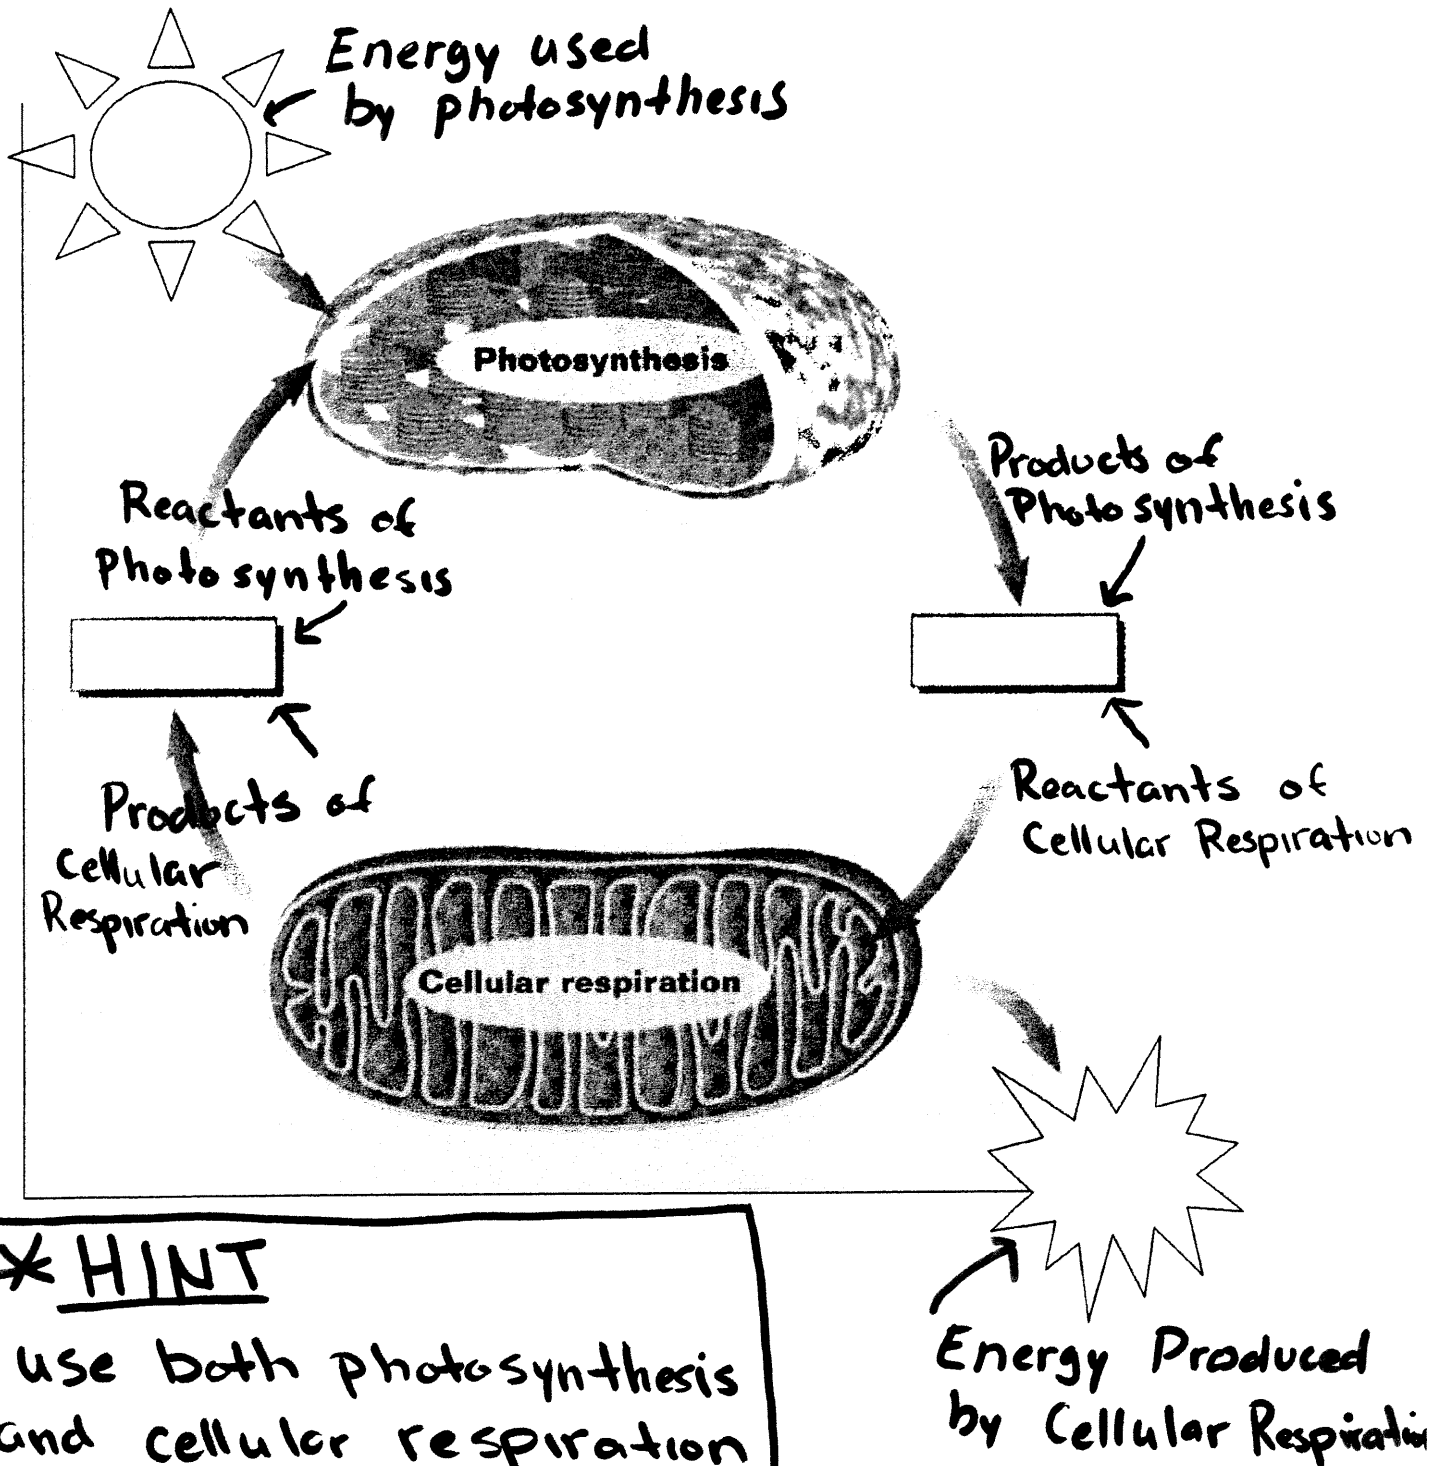 Energy used
by photosynthesis
Photosynthesis
Products of
Photosynthesis
Reactants of
Photosynthesis
Products of
Cellular
Respiration
Reactants of
Cellular Respiration
Cellular respiration
* HINT
use both photosynthesis
and cellular respiration
Energy Produced
by Cellular Respiration